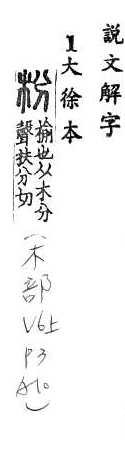 說文解字
1大徐本
枌
榆也从木分
聲扶分切
(木部
V6上
P3